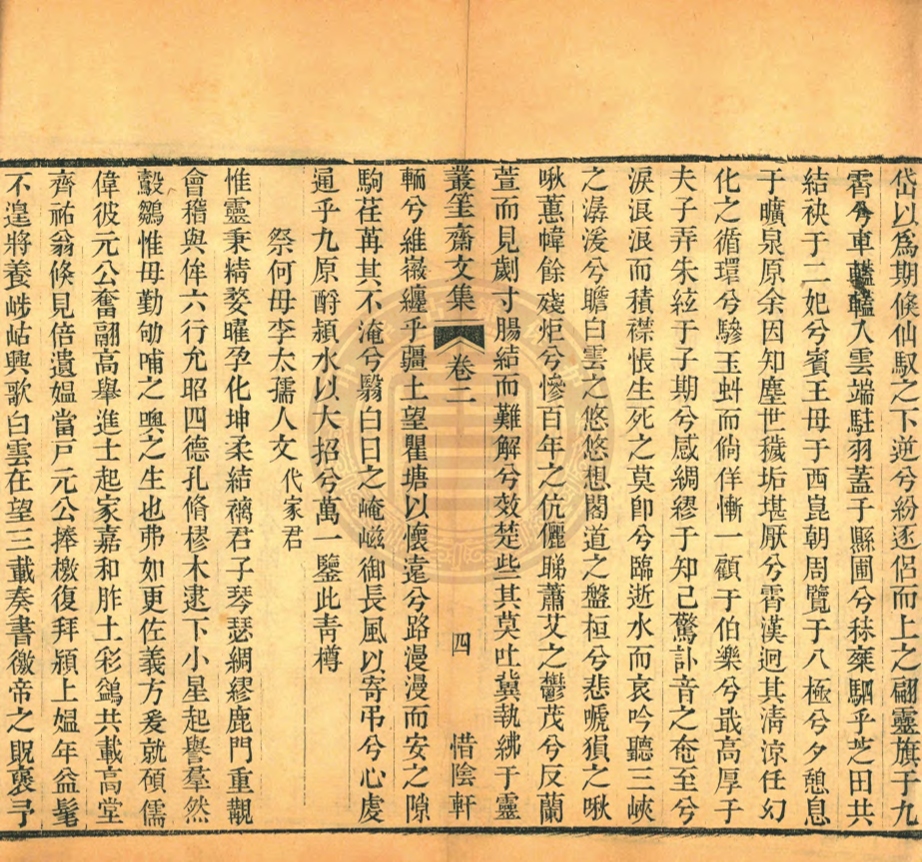 岱以爲期候仙馭之下逆兮紛逐侶而上之翩靈旗于九
霄兮車轞轞入雲端駐羽蓋于縣圃兮秣藥駟乎芝田共
結袂于二妃兮賓王母于西崑朝周覽于八極兮夕憩息
于曠泉原余因知塵世穢垢堪厭兮霄漢迥其淸涼任幻
化之循環兮驂玉蚪而倘佯慚一顧于伯樂兮最高厚于
夫子弄朱絃于子期兮感綢繆于知己驚訃音之奄至兮
淚浪浪而積襟悵生死之莫卽兮臨逝水而哀吟聽三峽
之潺湲兮瞻白雲之悠悠想閣道之盤桓兮悲嗁猿之啾
啾蕙幃餘殘炬兮慘百年之伉儷睇蕭艾之鬱茂兮反蘭
萱而見劌寸腸結而難解兮效楚些其莫吐冀執紼于靈
叢筀齋文集 卷二 四 惜陰軒
輀兮維嶶纏乎疆土望瞿塘以懷遠兮路漫漫而安之隙
駒荏苒其不淹兮翳白日之崦嵫御長風以寄弔兮心處
通乎九原酹潁水以大招兮萬一鑒此靑樽
祭何母李太孺人文 代家君
惟靈秉精婺曜孕化坤柔結褵君子琴瑟綢繆鹿門重覯
會稽與侔六行允昭四德孔脩樛木逮下小星起譽羣然
鷇鶵惟母勤劬哺之噢之生也弗如更佐義方爰就碩儒
偉彼元公奮翮高舉進士起家嘉和胙土彩鷁共載高堂
齊祐翁倏見倍遺媼當戸元公捧檄復拜潁上媼年益髦
不遑將養陟岵興歌白雲在望三載奏書徼帝之貺褒予